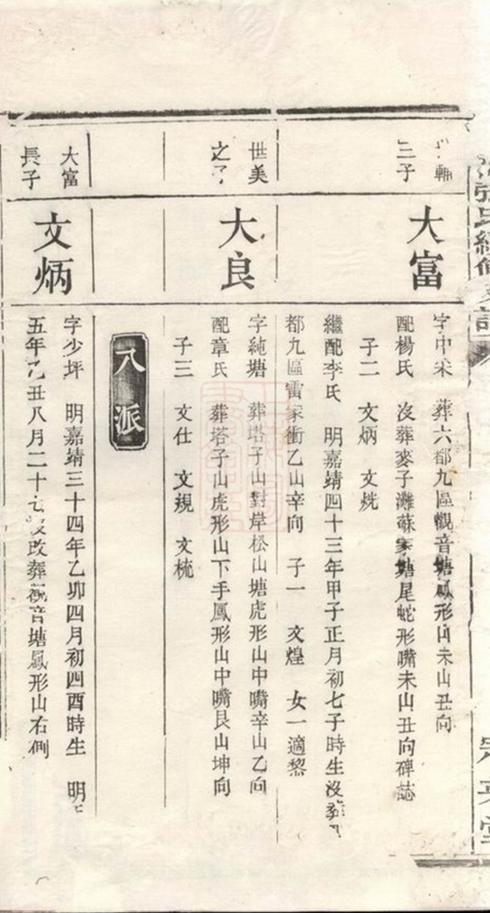 張氏
三子
大富
字中宋 葬六都九區觀音塘鳳形山未山丑向
配楊氏 沒葬麥子灘蘇家塘尾蛇形嘴未山丑向碑誌
子二 文炳 文㭠
繼配李氏 明嘉靖四十三年甲子正月初七子時生沒葬
都九區雷家衝乙山辛向 子一 文煌 女一適黎
世美
之子
大良
字純塘 葬塔子山對岸松山塘虎形山中嘴辛山乙向
配章氏 葬塔子山虎形山下手鳳形山中嘴艮山坤向
子三 文仕 文規 文梳
八派
大富
長子
文炳
字少坪 明嘉靖三十四年乙卯四月初四酉時生 明
五年乙丑八月二十 沒改葬觀音塘鳳形山右側